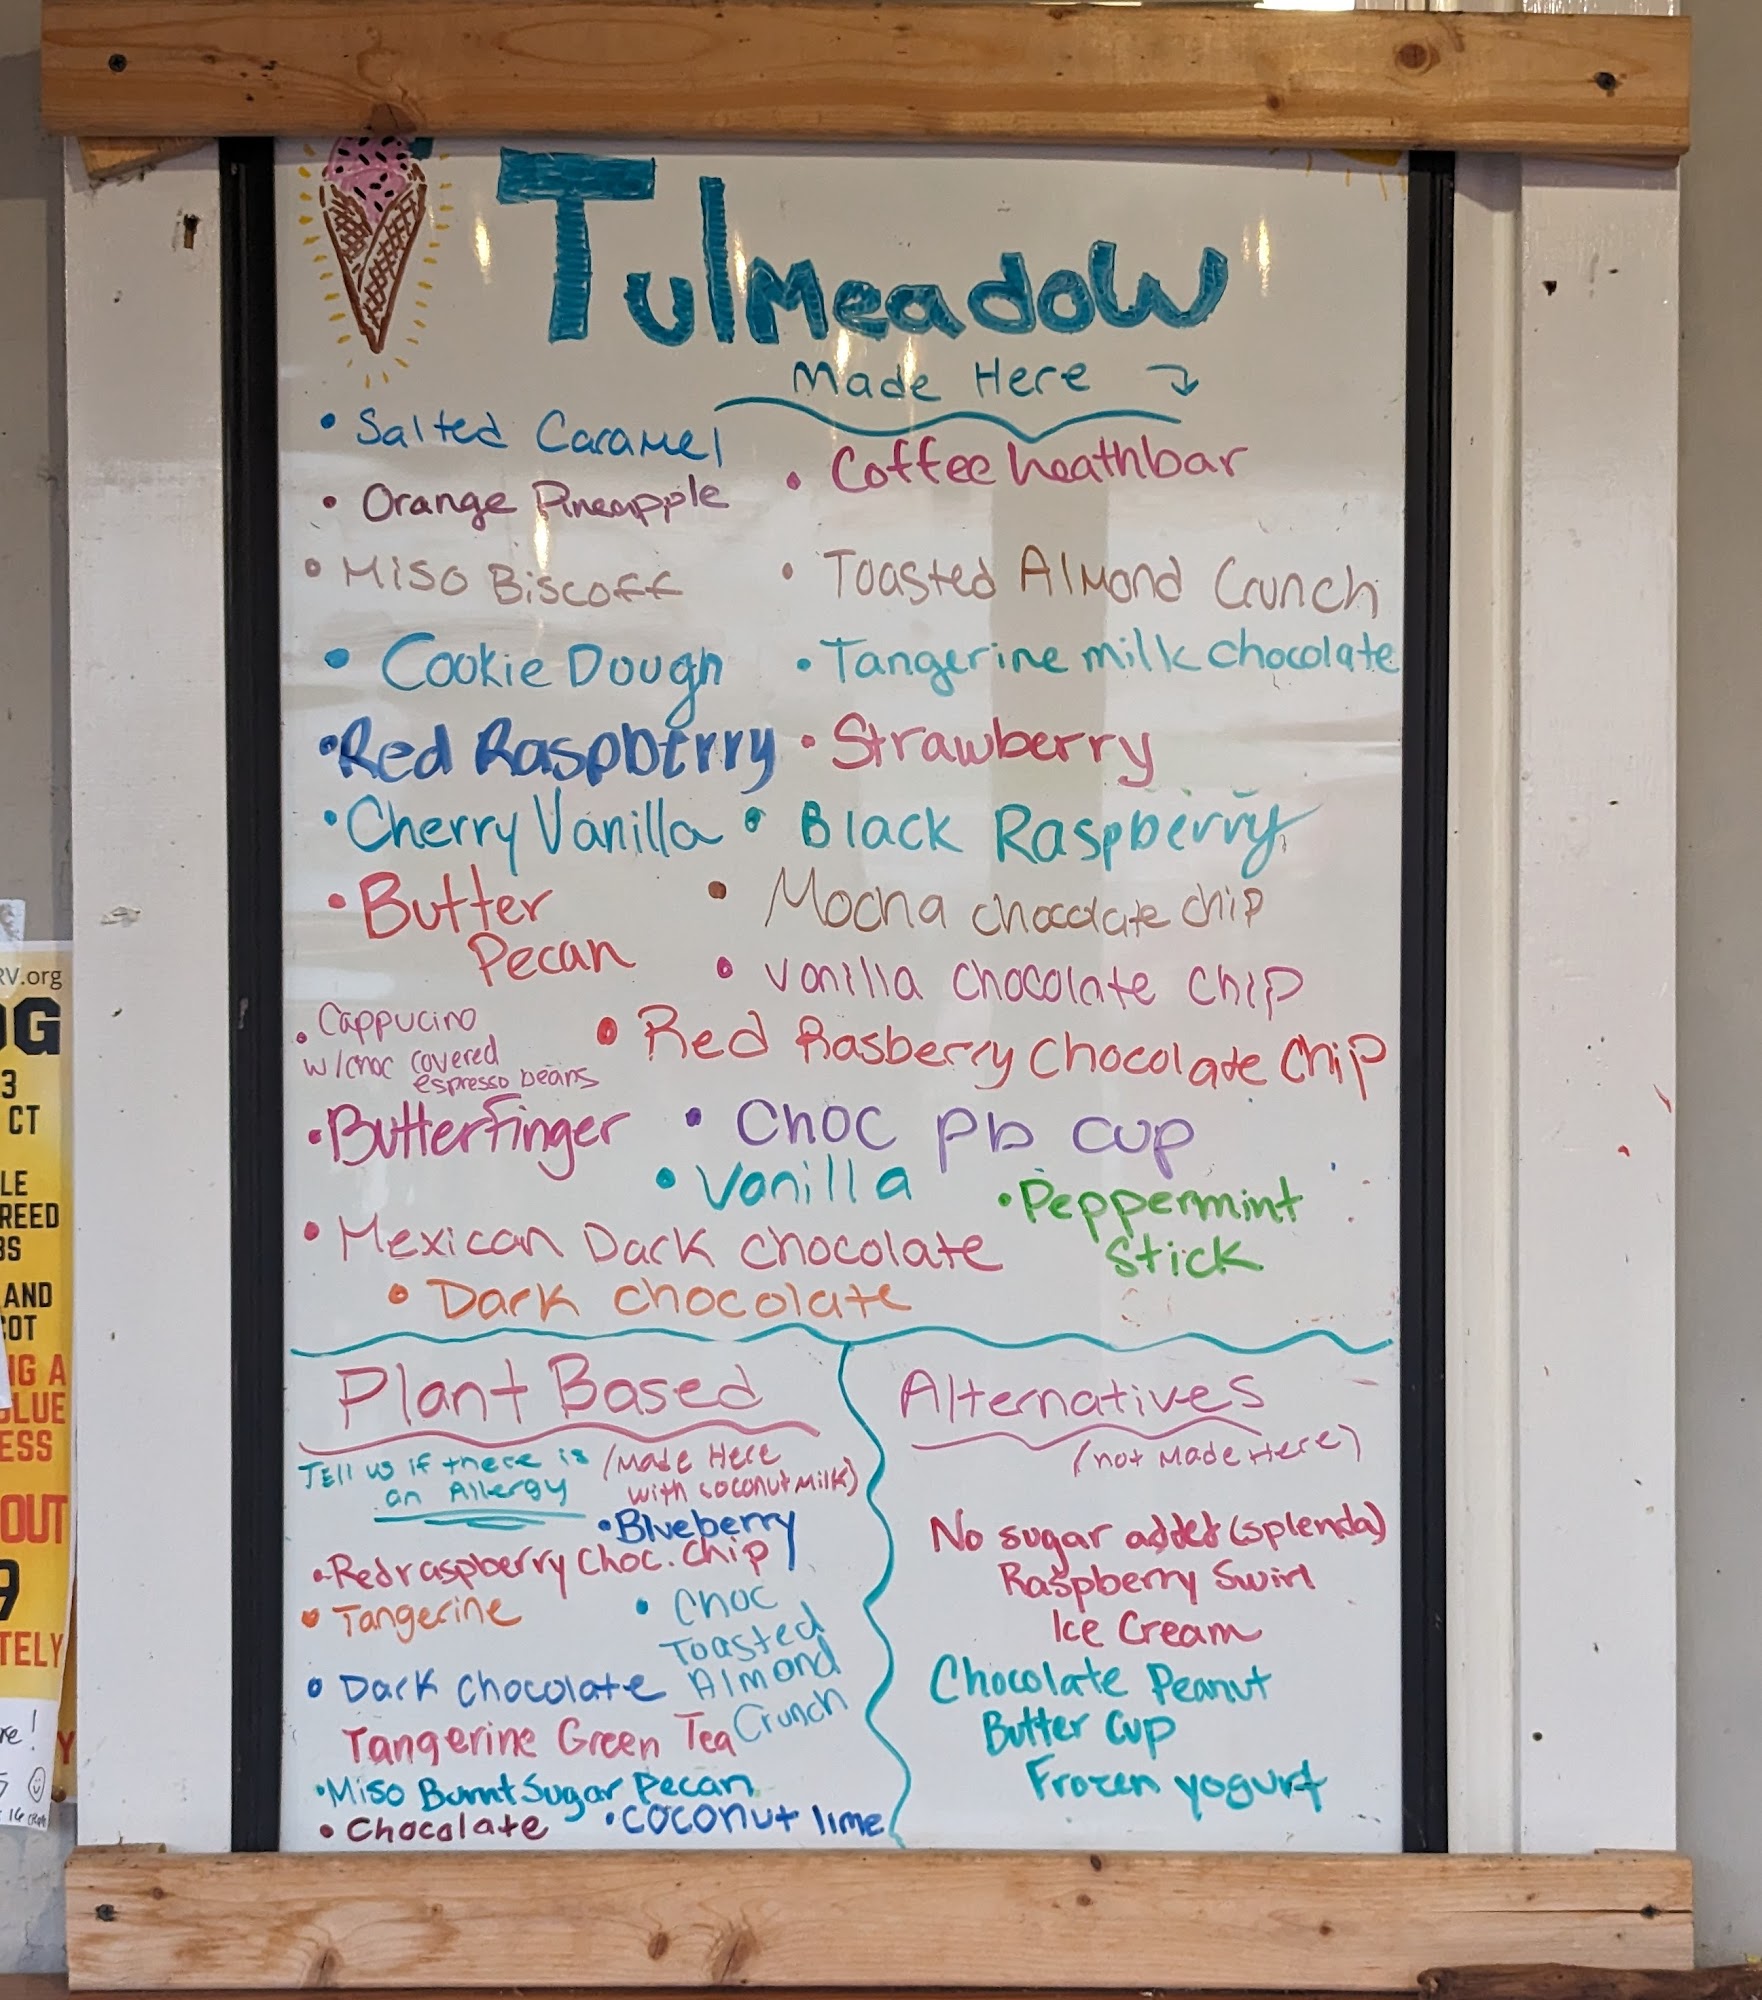 Tulmeadow
Made Here
• Salted Caramel
• Coffee heathbar
• Orange Pineapple
• Miso Biscoff
• Toasted Almond Crunch
• Cookie Dough
• Tangerine milk chocolate
• Red Raspberry
• Strawberry
• Cherry Vanilla
• Black Raspberry
• Butter
Pecan
• Mocha chocolate chip
• Vanilla chocolate chip
• Cappucino
w/choc covered
espresso beans
• Red Rasberry Chocolate Chip
• Butterfinger
• Choc pb cup
• Vanilla
• Peppermint
Stick
• Mexican Dark chocolate
• Dark chocolate
Plant Based
Tell us if there is
an Allergy
(Made Here
with coconut milk)
• Blueberry
• Red raspberry choc. chip
• Tangerine
• Choc
Toasted
Almond
Crunch
• Dark chocolate
Tangerine Green Tea
• Miso Burnt Sugar Pecan
• Chocolate
• Coconut lime
Alternatives
(not Made Here)
No sugar added (splenda)
Raspberry Swirl
Ice Cream
Chocolate Peanut
Butter Cup
Frozen yogurt
RV.org
OG
3
CT
LE
REED
BS
AND
COT
NG A
BLUE
ESS
OUT
9
TELY